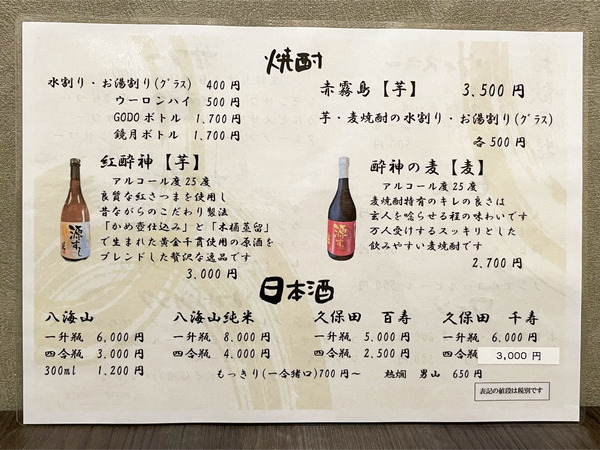 焼酎
水割り・お湯割り(ｸﾞﾗｽ) 400円
ウーロンハイ 500円
GODOボトル 1.700円
鏡月ボトル 1.700円
赤霧島【芋】 3.500円
芋・麦焼酎の水割り・お湯割り(ｸﾞﾗｽ)
各500円
紅酔神【芋】
アルコール度25度
良質な紅さつまを使用し
昔ながらのこだわり製法
「かめ壺仕込み」と「木桶蒸留」
で生まれた黄金千貫使用の原酒を
ブレンドした贅沢な逸品です
3.000円
酔神の麦【麦】
アルコール度25度
麦焼酎特有のキレの良さは
玄人を唸らせる程の味わいです
万人受けするスッキリとした
飲みやすい麦焼酎です
2.700円
日本酒
八海山
一升瓶 6.000円
四合瓶 3.000円
300ml 1.200円
八海山純米
一升瓶 8.000円
四合瓶 4.000円
久保田 百寿
一升瓶 5.000円
四合瓶 2.500円
久保田 千寿
一升瓶 6.000円
四合瓶 3,000円
もっきり(一合猪口)700円～ 熱燗 男山 650円
表記の値段は税別です